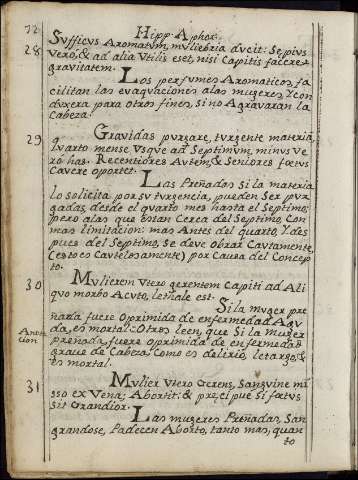 72
Hipp. Aphor.
28
Svfficvs Aromatvm, mvliebria dvcit: Sepivs
vero, & ad alia vtilis eset, nisi Capitis faccret
gravitatem.
Los perfvmes Aromaticos, fa
cilitan las evaqvaciones alas mvgeres, Y con
dvxera para otros fines, si no Agravaran la
Cabeza.
29
Gravidas pvrgare, tvrgente materia,
qvarto mense vsqve ad Septimvm, minvs ve
ro has. Recentiores Avtem, & Seniores foetvs
Cavere oportet.
Las Preñadas si la materia
lo solicita por sv tvrgencia, pveden Ser pvr
gadas, desde el qvarto mes hasta el Septimo;
pero alas qve estan Cerca del Septimo, Con
mas limitacion: mas Antes del qvarto, Y des
pves del Septimo, se deve obrar Cavtamente,
(esto es Cavtelosamente) por Cavsa del Concep
to.
30
Mvlierem vtero gerentem Capiti ad Ali
qvo morbo Acvto, lethale est.
Si la mvger pre
ñada fvere oprimida de enfermedad Agv
da, es mortal: Otros leen, qve Si la mvger
Anota
cion
preñada, fvere oprimida de enfermedad
grave de Cabeza Como es delirio, letargo, &
es mortal.
31
Mvlier vtero Gerens, Sangvine mi
sso ex Vena; Abortit: & præcipve si foetvs
sit Grandior.
Las mvgeres Preñadas, San
grandose, Padecen Aborto, tanto mas, qvan
to